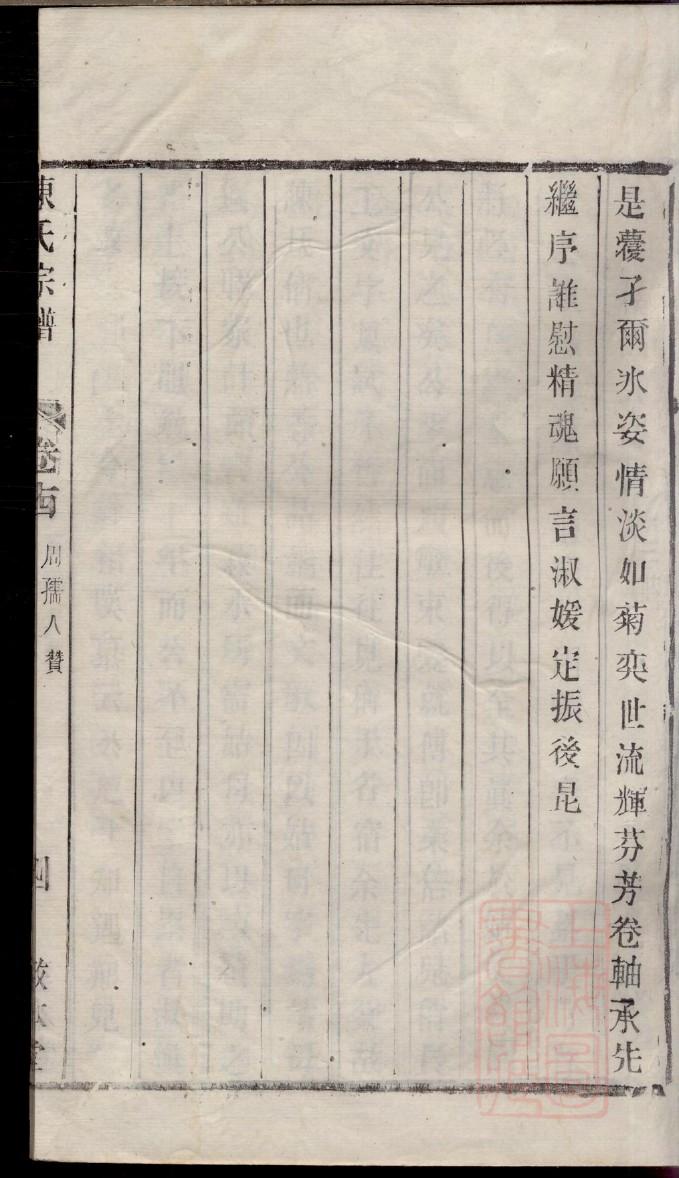 是薆孑爾氷姿情淡如菊奕世流輝芬芳卷軸承先
繼序誰慰精魂願言淑媛定振後昆
陳氏宗譜
卷十四
周孺人贊
四
敦本堂